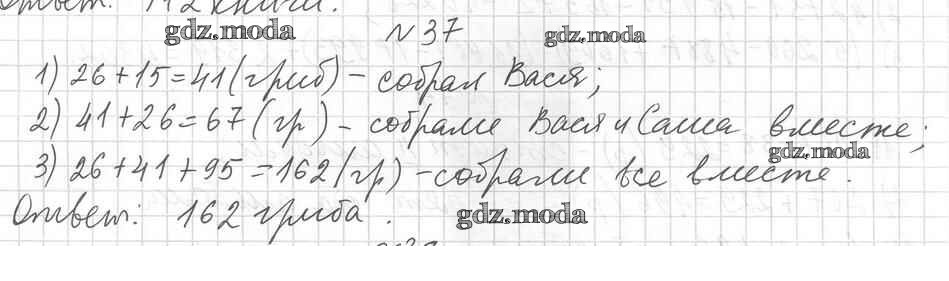 Ответ: 112 книги.
gdz.moda № 37 gdz.moda
1) 26 + 15 = 41 (гриб) - собрал Вася;
2) 41 + 26 = 67 (гр) - собрали Вася и Саша вместе;
gdz.moda
3) 26 + 41 + 95 = 162 (гр) - собрали все вместе.
Ответ: 162 гриба.
gdz.moda